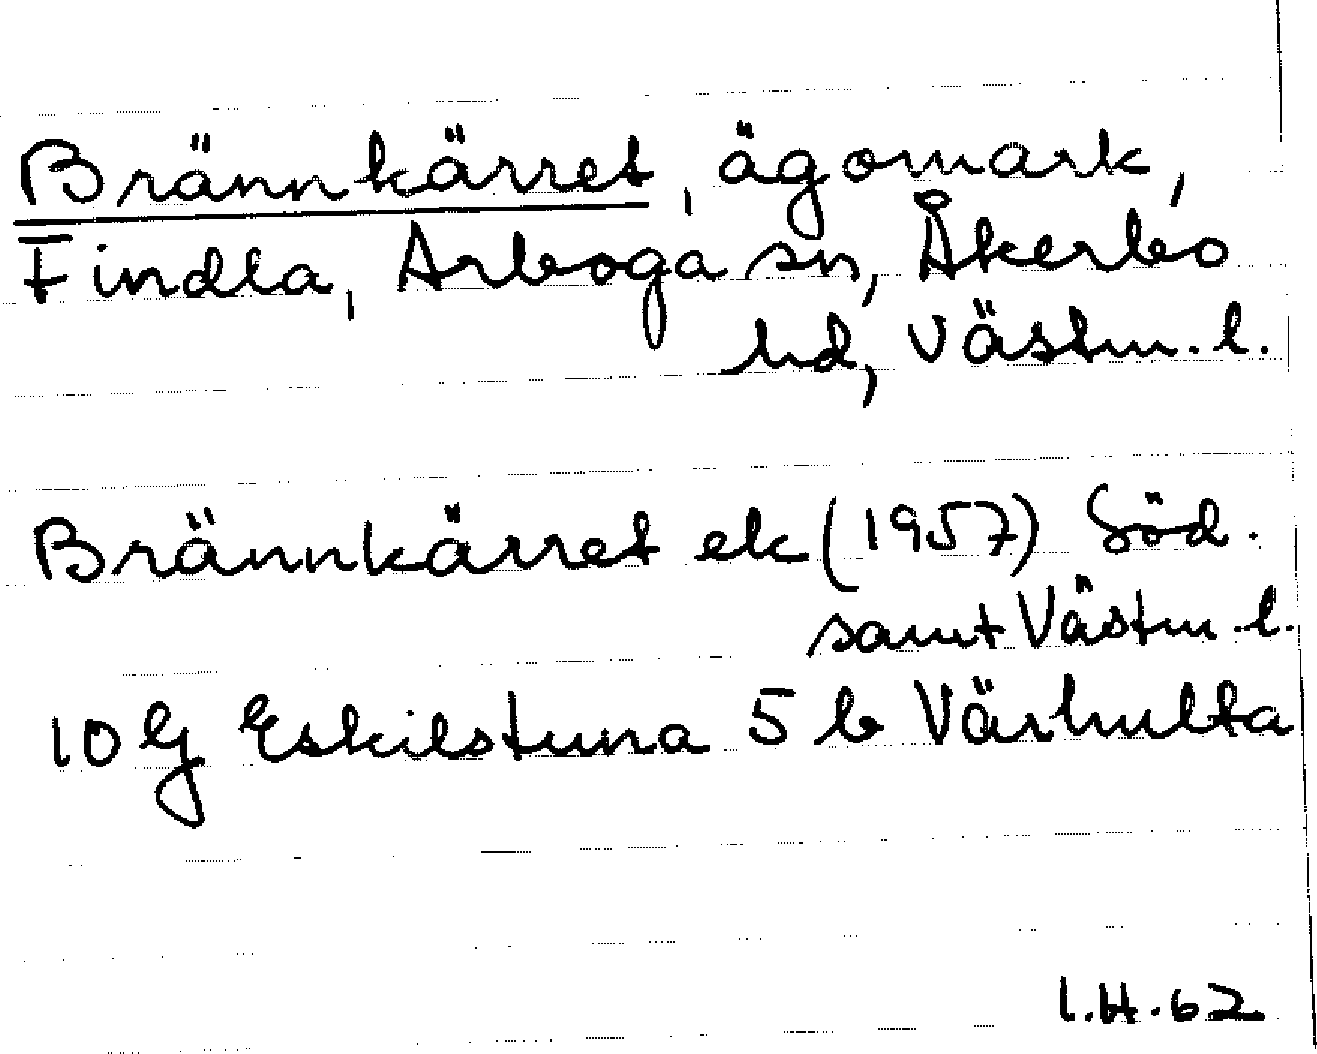 Brännkärret, ägomark,
Findla, Arboga sn, Åkerbo
hd, Västm. l.
Brännkärret ek (1957) Söd.
samt Västm. l.
10 G Eskilstuna 5 b Värhulta
I.H.62